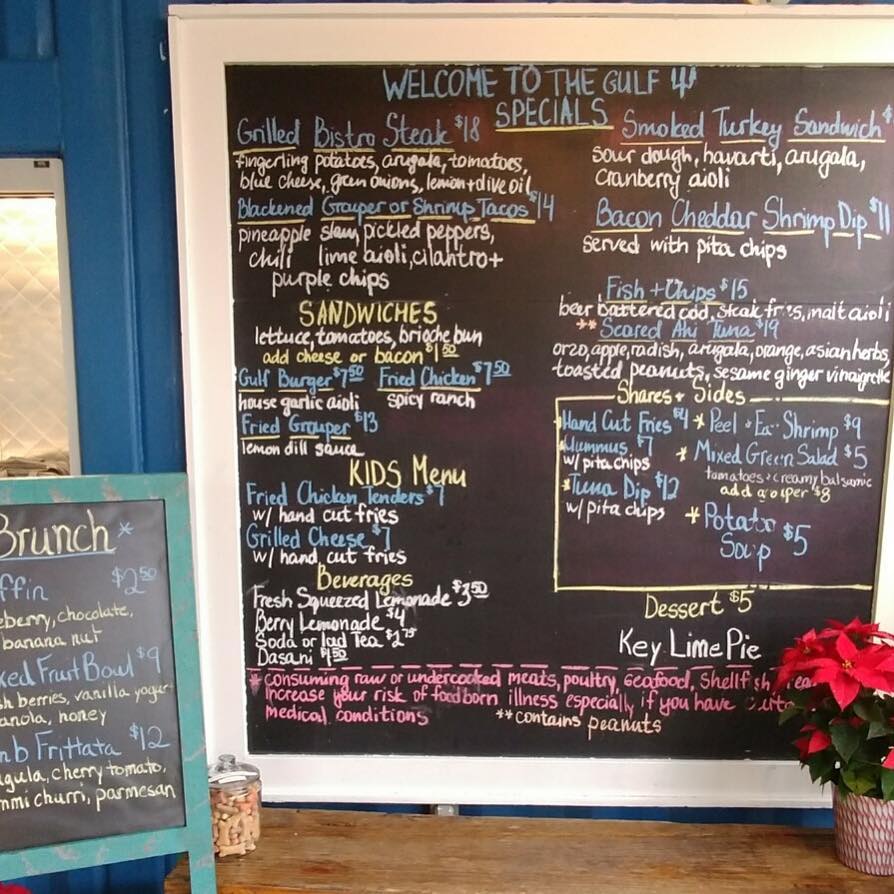 WELCOME TO THE GULF
SPECIALS
Grilled Bistro Steak $18
fingerling potatoes, arugala, tomatoes,
blue cheese, green onions, lemon + olive oil
Blackened Grouper or Shrimp Tacos $14
pineapple slaw, pickled peppers,
chili lime aioli, cilantro +
purple chips
SANDWICHES
lettuce, tomatoes, brioche bun
add cheese or bacon $1.50
Gulf Burger $7.50 Fried Chicken $7.50
house garlic aioli spicy ranch
Fried Grouper $13
lemon dill sauce
KIDS Menu
Fried Chicken Tenders $7
w/ hand cut fries
Grilled Cheese $7
w/ hand cut fries
Beverages
Fresh Squeezed Lemonade $3.50
Berry Lemonade $4
Soda or Iced Tea $2.75
Dasani $1.50
Smoked Turkey Sandwich $
sour dough, havarti, arugala,
cranberry aioli
Bacon Cheddar Shrimp Dip $11
served with pita chips
Fish + Chips $15
beer battered cod, steak fries, malt aioli
** Seared Ahi Tuna $19
orzo, apple, radish, arugala, orange, asian herbs
toasted peanuts, sesame ginger vinaigrette
Shares + Sides
Hand Cut Fries $4 * Peel + Eat Shrimp $9
Hummus $7 * Mixed Green Salad $5
w/ pita chips tomatoes + creamy balsamic
add grouper $8
* Tuna Dip $12
w/ pita chips
* Potato
Soup $5
Dessert $5
Key Lime Pie
* consuming raw or undercooked meats, poultry, seafood, shellfish
increase your risk of foodborn illness especially if you have
medical conditions ** contains peanuts
Brunch *
ffin $2.50
eberry, chocolate,
banana nut
xed Fruit Bowl $9
sh berries, vanilla yogur
anola, honey
mb Frittata $12
ugula, cherry tomato,
mmi churri, parmesan